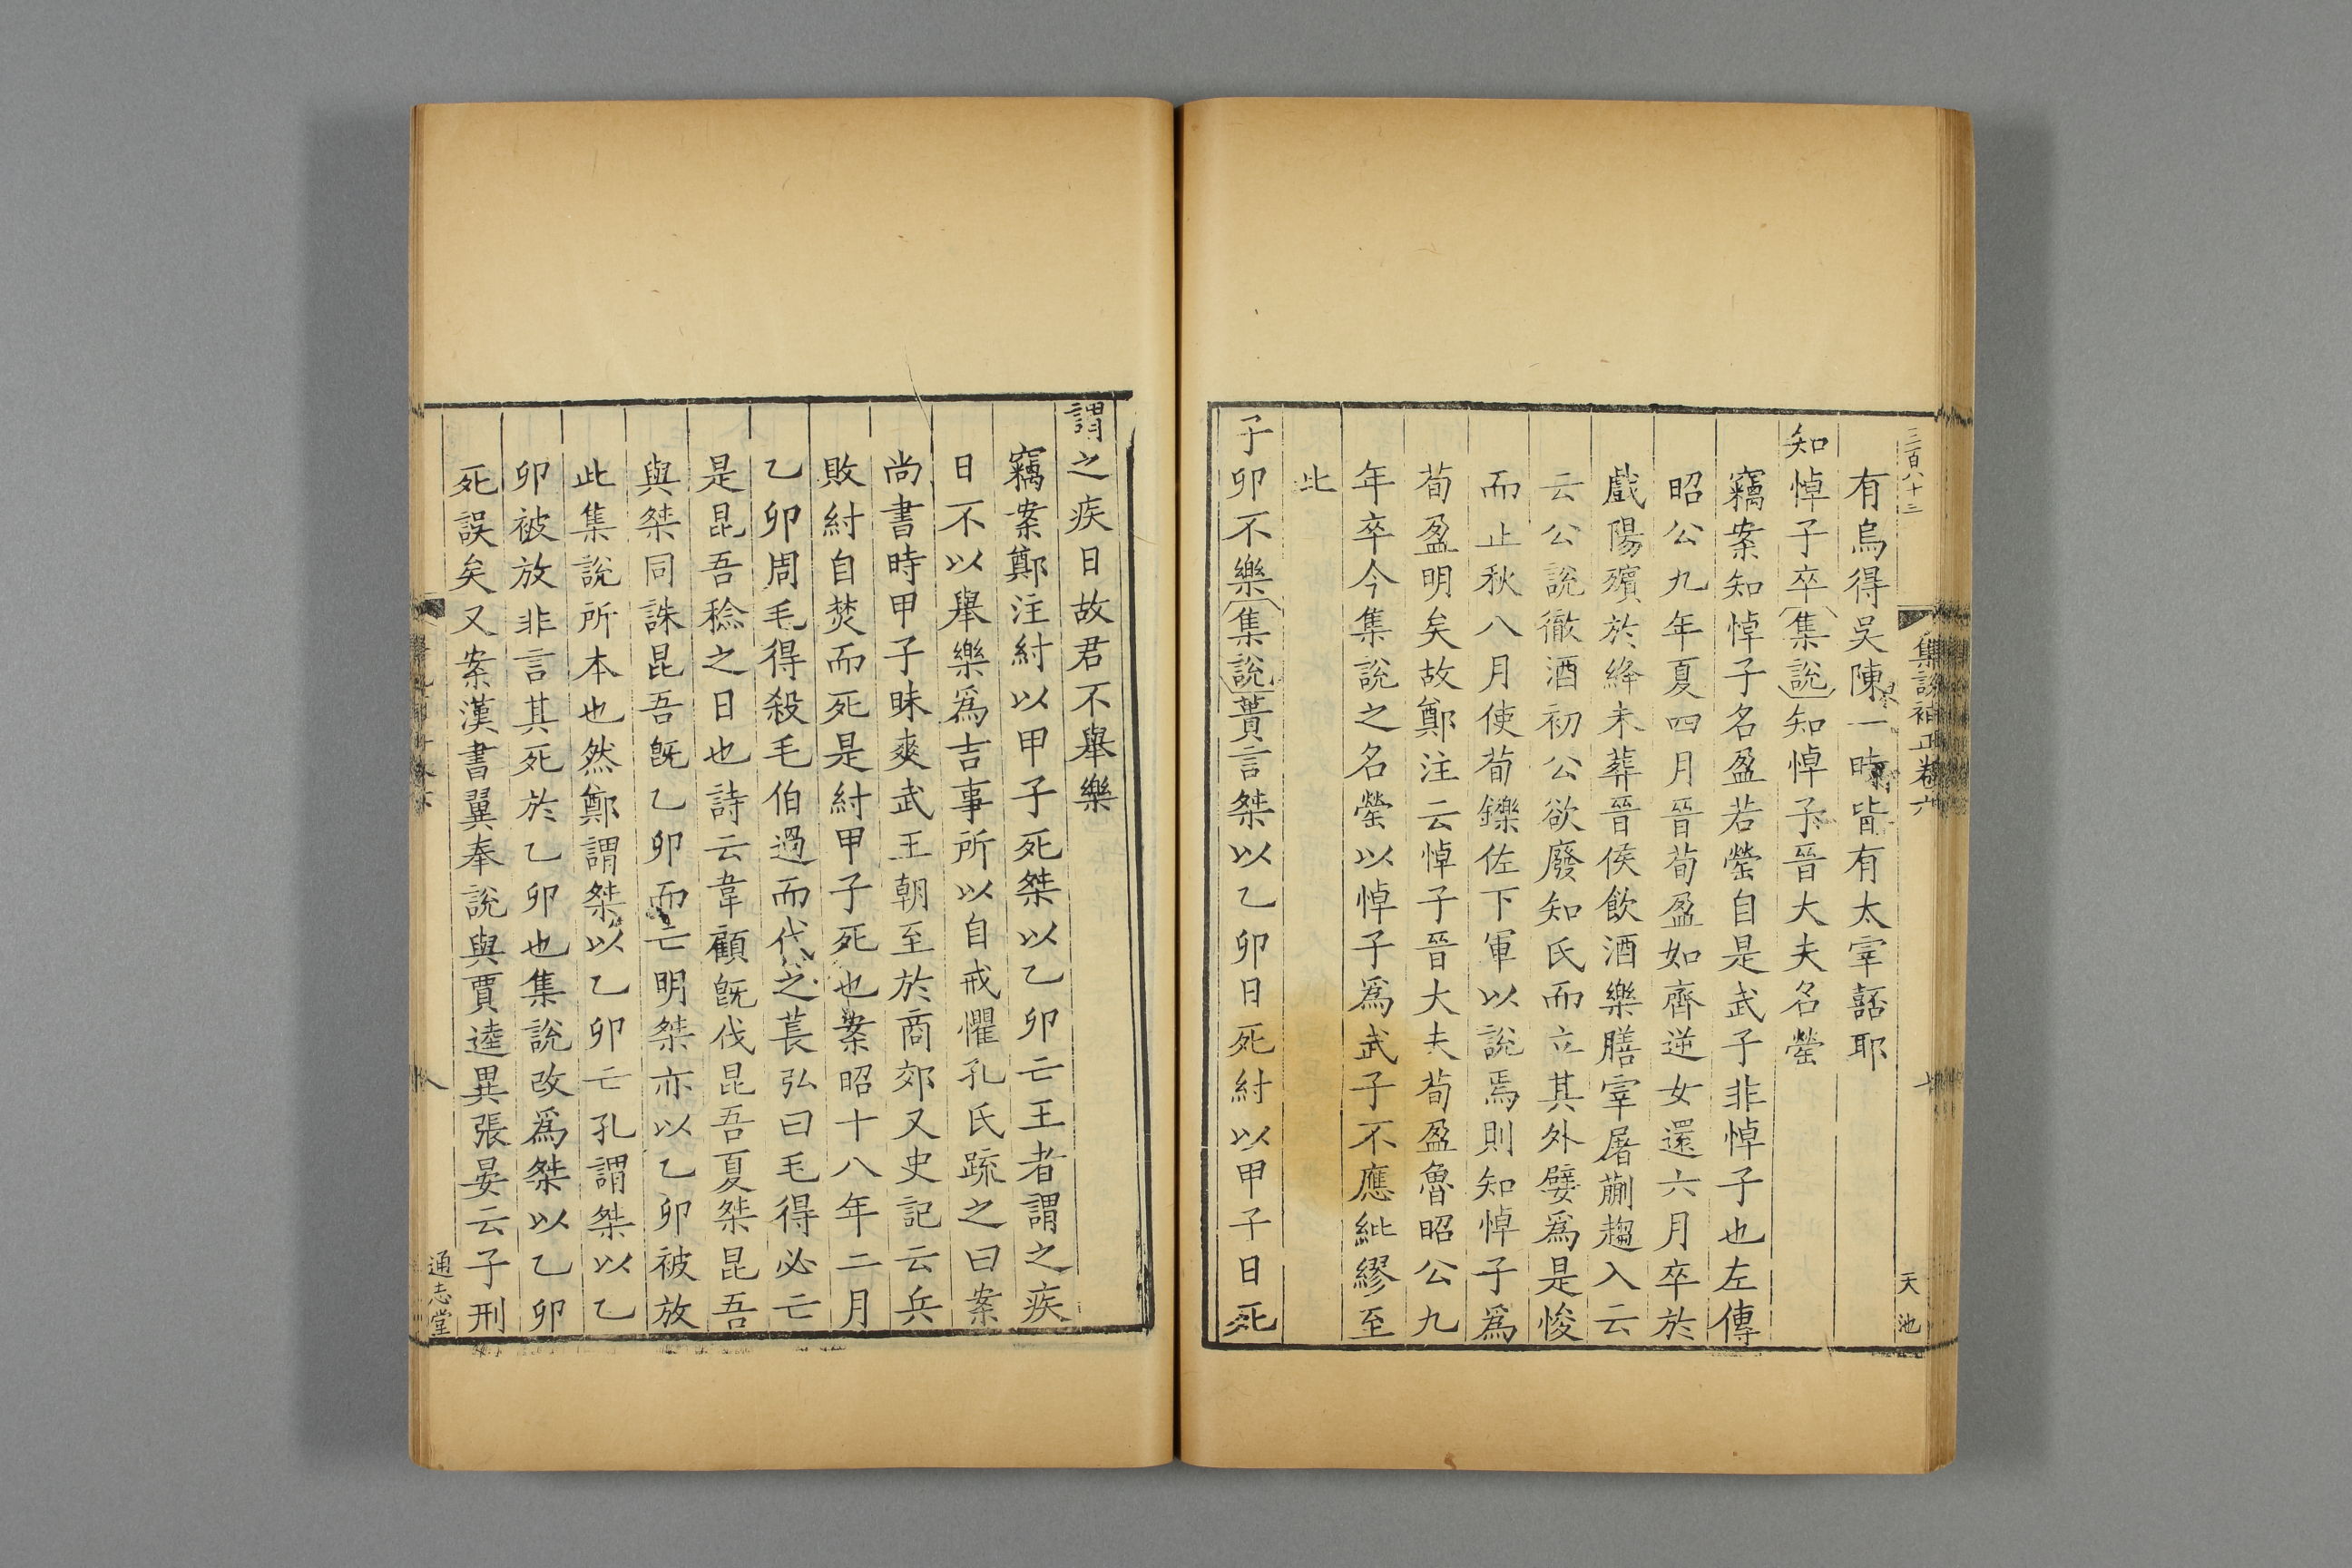 三百八十三
集説補正卷六
天池
有烏得吳陳一時皆有太宰嚭耶
知悼子卒集說知悼子晉大夫名罃
竊案知悼子名盈若罃自是武子非悼子也左傳
昭公九年夏四月晉荀盈如齊逆女還六月卒於
戲陽殯於絳未葬晉侯飲酒樂膳宰屠蒯趨入云
云公說徹酒初公欲廢知氏而立其外嬖爲是悛
而止秋八月使荀躒佐下軍以說焉則知悼子爲
荀盈明矣故鄭注云悼子晉大夫荀盈魯昭公九
年卒今集說之名罃以悼子爲武子不應紕繆至
此
子卯不樂集說蕢言桀以乙卯日死紂以甲子日死
謂之疾日故君不舉樂
竊案鄭注紂以甲子死桀以乙卯亡王者謂之疾
日不以舉樂爲吉事所以自戒懼孔氏疏之曰案
尚書時甲子昧爽武王朝至於商郊又史記云兵
敗紂自焚而死是紂甲子死也案昭十八年二月
乙卯周毛得殺毛伯過而代之萇弘曰毛得必亡
是昆吾稔之日也詩云韋顧旣伐昆吾夏桀昆吾
與桀同誅昆吾旣乙卯而亡明桀亦以乙卯被放
此集說所本也然鄭謂桀以乙卯亡孔謂桀以乙
卯被放非言其死於乙卯也集說改爲桀以乙卯
死誤矣又案漢書翼奉說與賈逵異張晏云子刑
八
通志堂